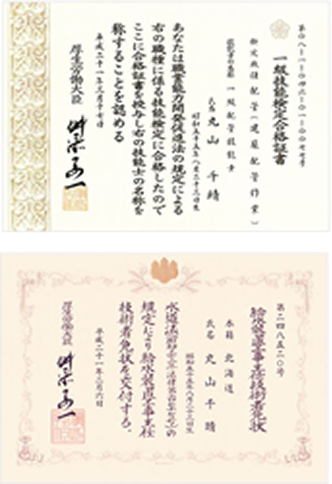 第〇八一一〇四三一〇一〇〇〇七七号
一級技能検定合格証書
検定職種 配管(建築配管作業)
技能士の名称 一級配管技能士
氏名 丸山 千晴
昭和五十五年八月二十三日生
あなたは職業能力開発促進法の規定による
右の職種に係る技能検定に合格したので
ここに合格証書を授与し右の技能士の名称を
称することを認める
平成二十一年三月十七日
厚生労働大臣
舛添要一
第二四八五二〇号
給水装置工事主任技術者免状
本籍 北海道
氏名 丸山 千晴
昭和五十五年八月二十三日生
水道法(昭和三十二年法律第百七十七号)の
規定により給水装置工事主任
技術者免状を交付する。
平成二十一年三月六日
厚生労働大臣
舛添要一